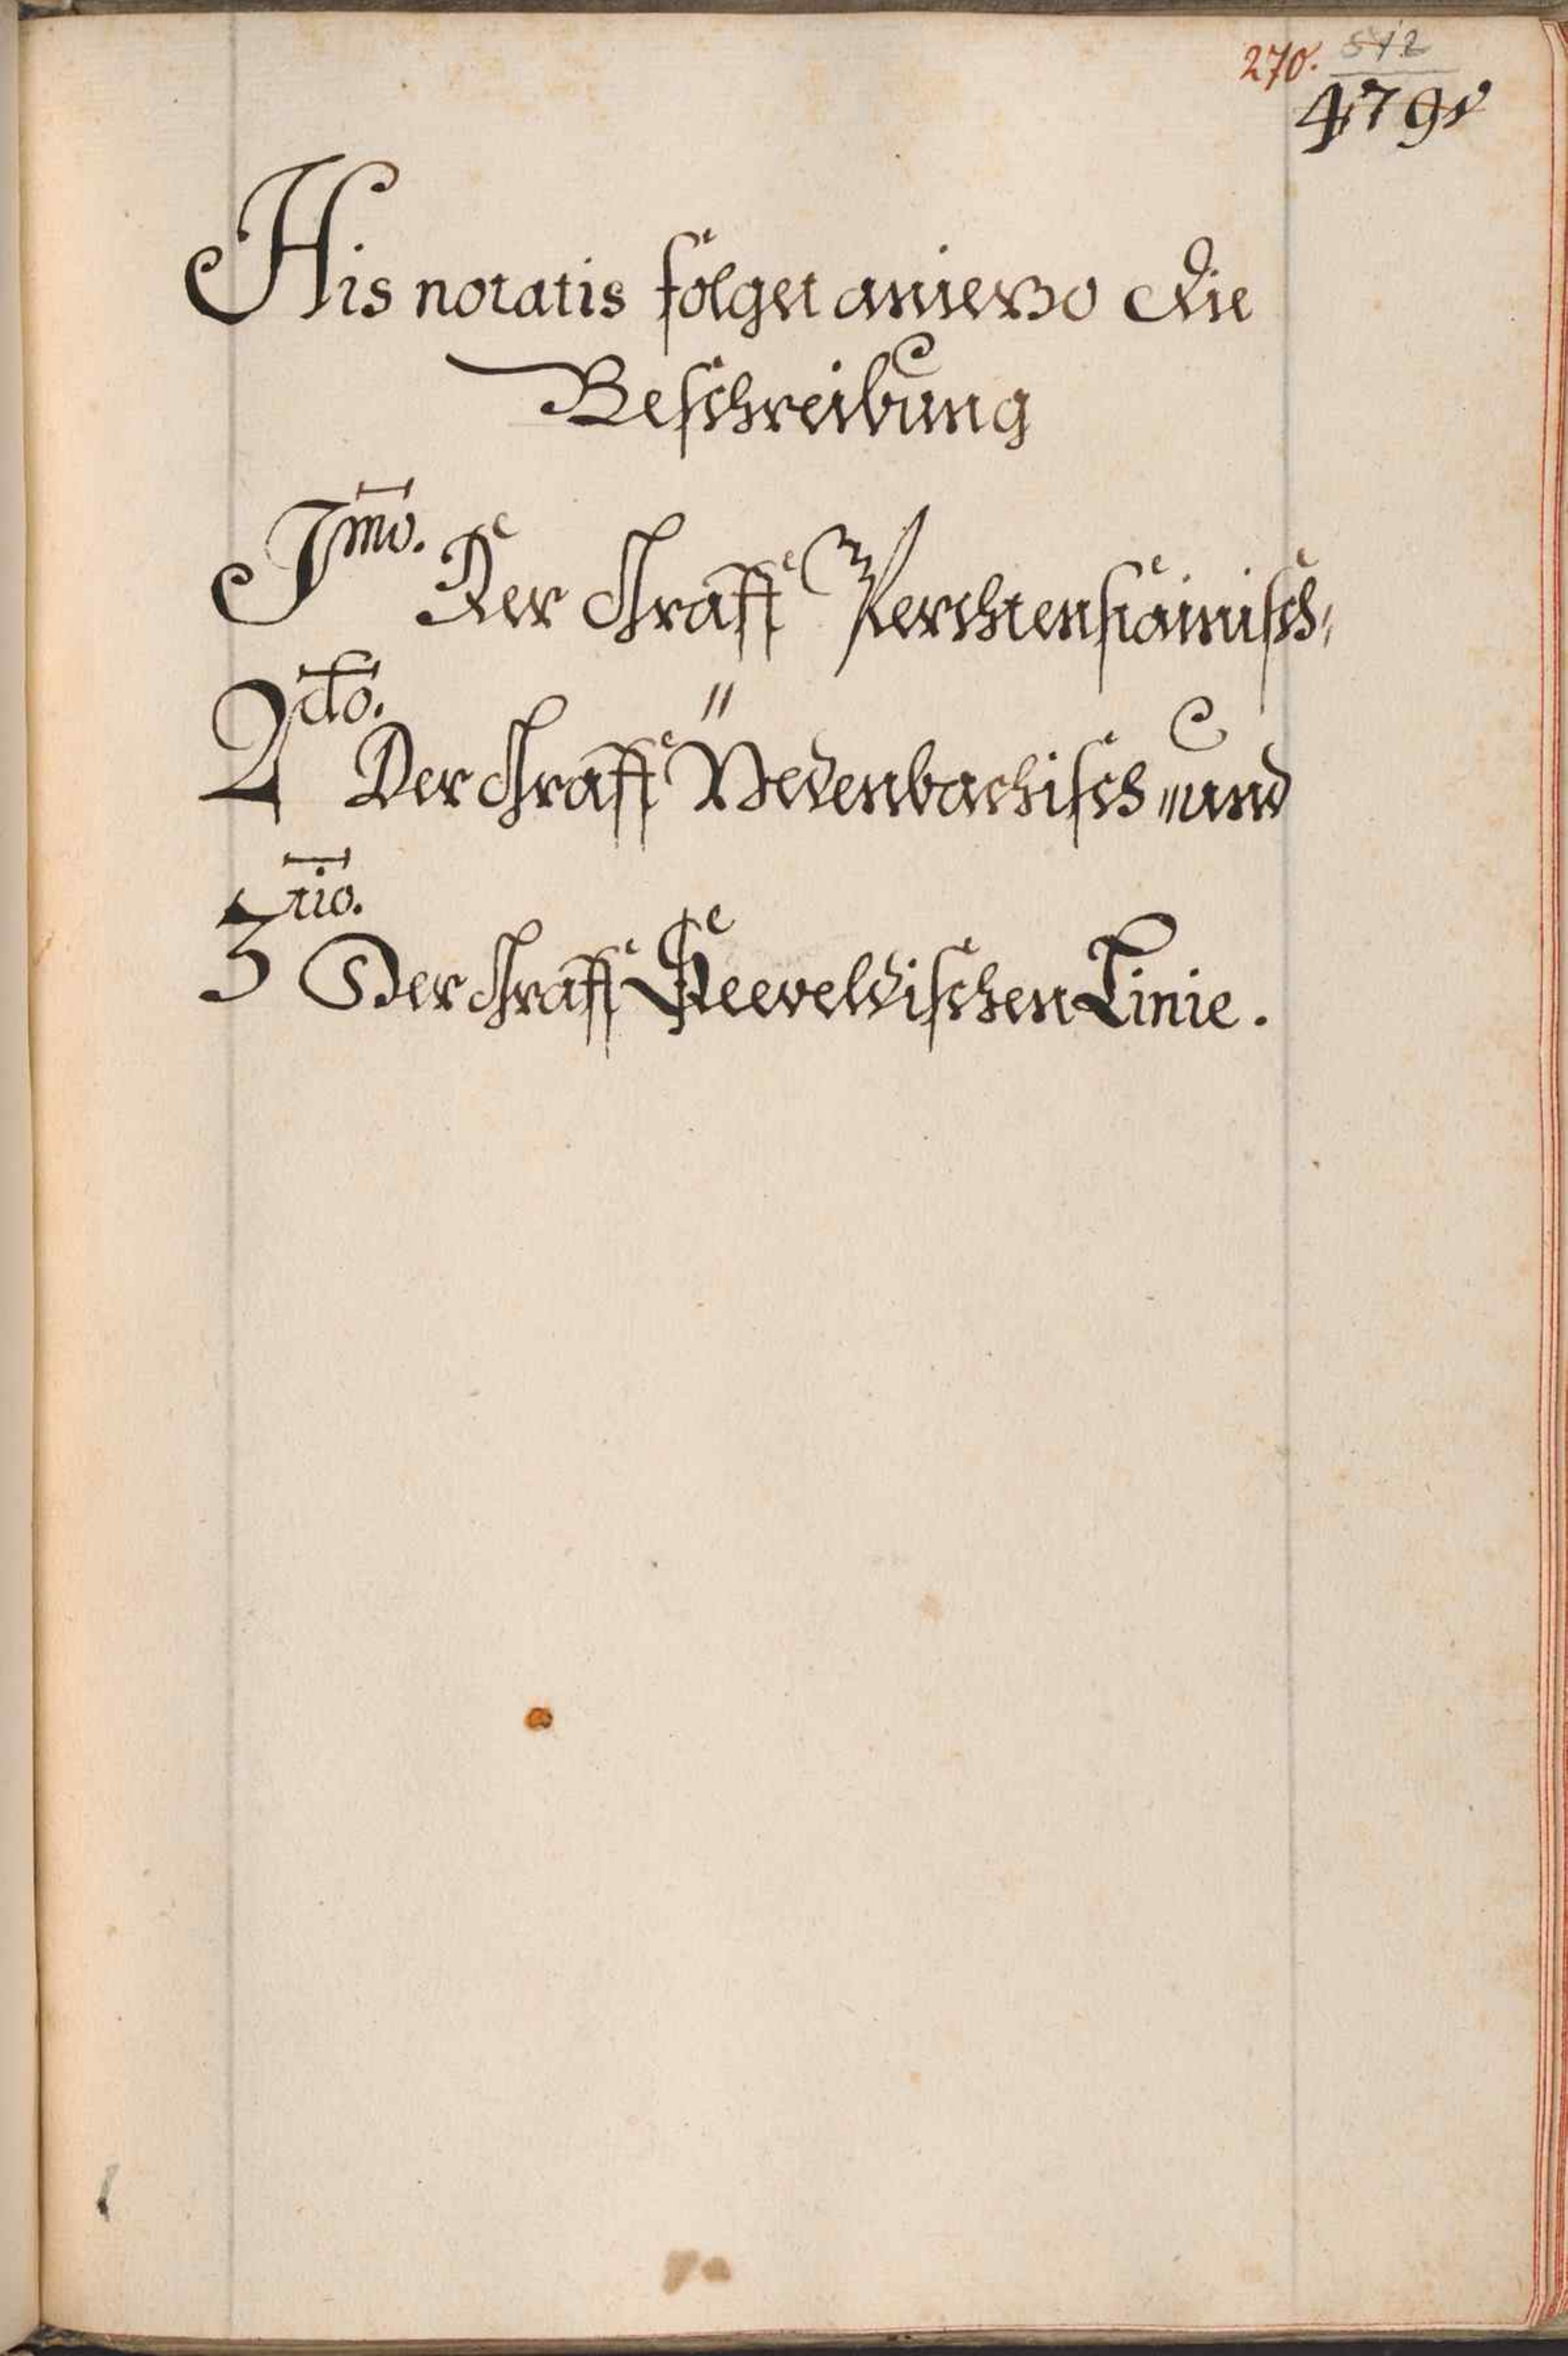 270. 512
479
His notatis folget anjezo die
Beschreibung
Imo. Der Graff Perchtenstainisch,
2do. Der Graff Nedenbachisch „und
3tio. Der Graff Seeveldischen Linie.